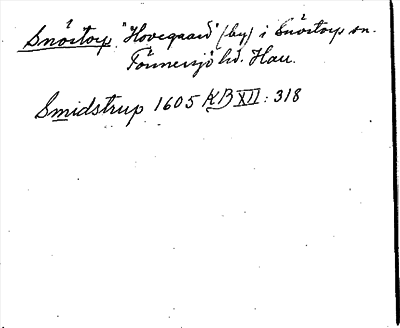 Snöstorp. "Hovegaard" (by) i Snöstorp sn.
Tönnersjö hd. Hall.
Smidstrup 1605 KB XII: 318